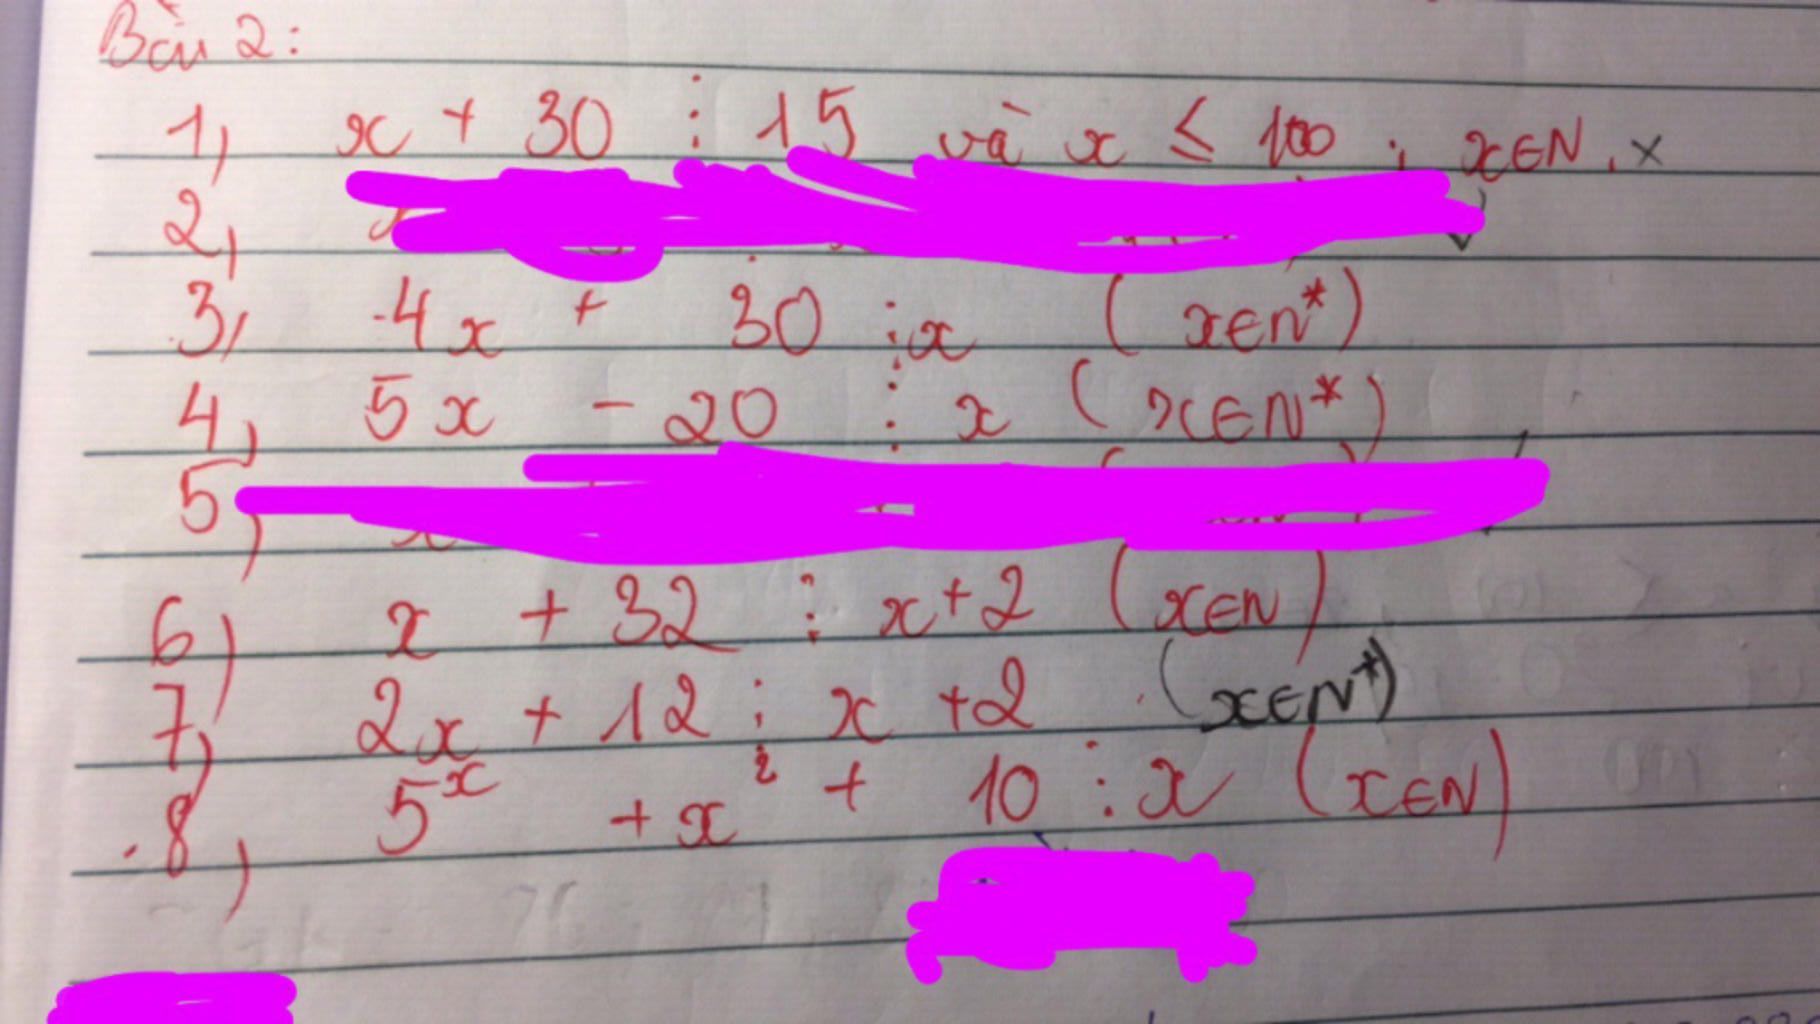 Bài 2:
1, x + 30 ⋮ 15 và x ≤ 100 ; x∈N. x
2,
3, 4x + 30 ⋮ x ( x∈N*)
4, 5x - 20 ⋮ x ( x∈N*)
5,
6) x + 32 ⋮ x+2 (x∈N)
7, 2x + 12 ⋮ x +2 (x∈N*)
8, 5ˣ + x² + 10 ⋮ x (x∈N)